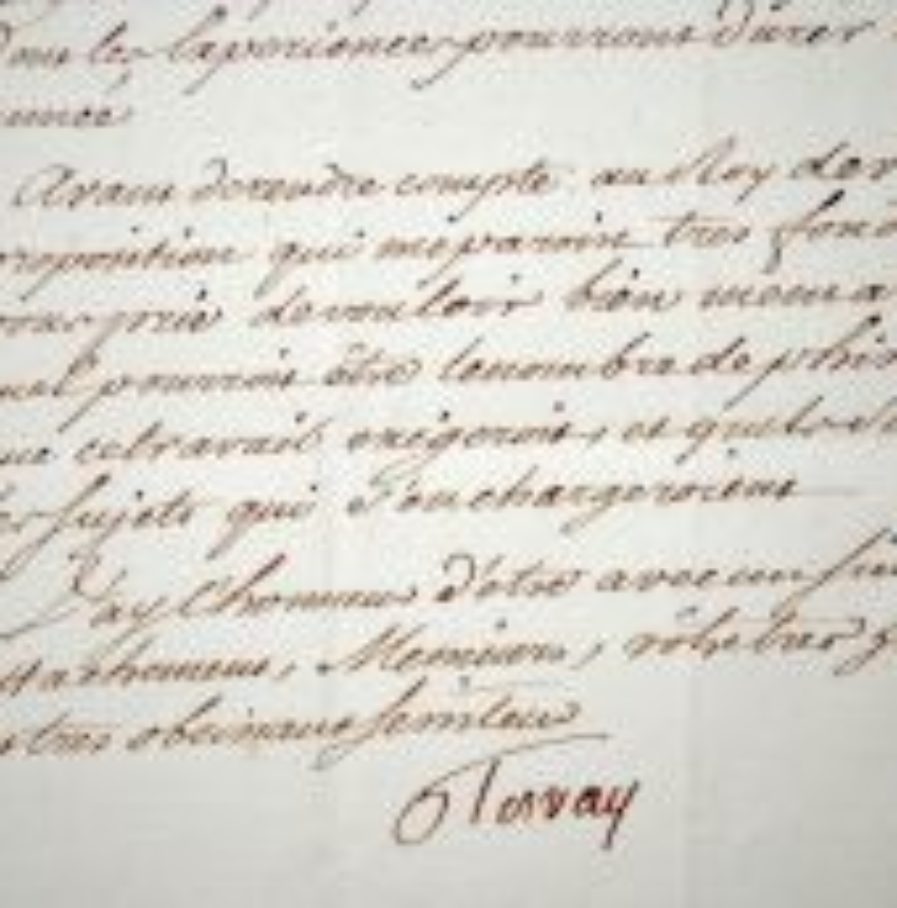 dont les Experiences pourront durer
année
Avant de rendre compte au Roy de
proposition qui me paroit très fond
vous prie de vouloir bien me m
quel pourroit être le nombre de phi
que ce travail exigeroit, et quels
les sujets qui s'en chargeroient
J'ay l'honneur d'etre avec un sin
attachement, Messieurs, votre tres
et tres obeissant serviteur